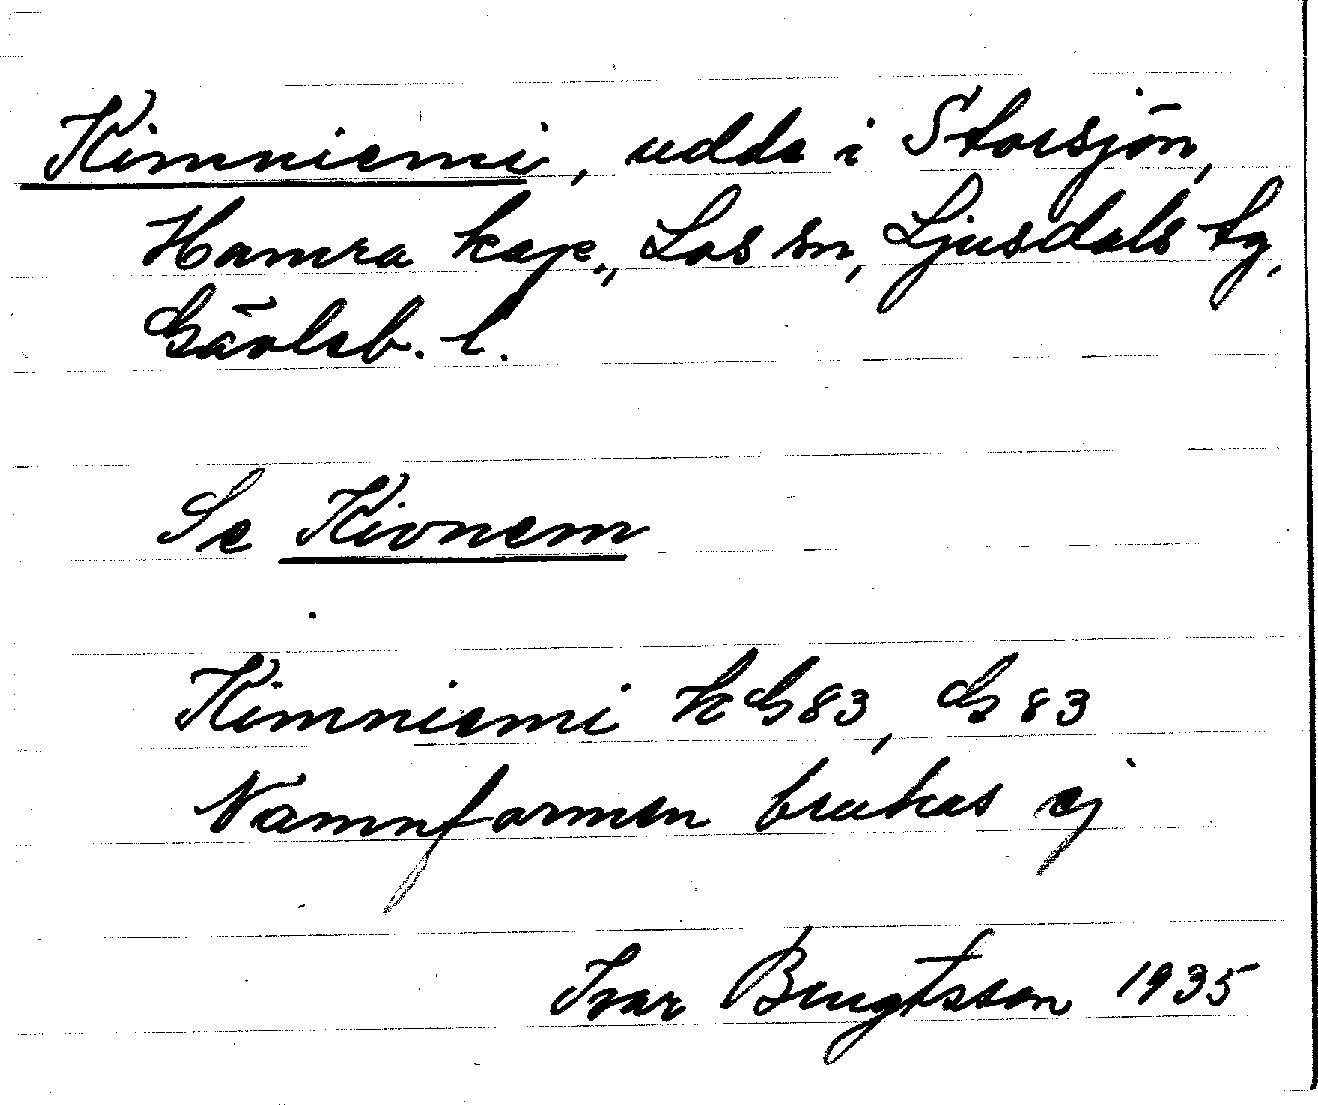 Kimniemi, udde i Storsjön,
Hamra kap., Los sn, Ljusdals tg,
Gävleb. l.
Se Kivnem
Kimniemi k G 83, G 83
Namnformen brukas ej
Ivar Bengtsson 1935